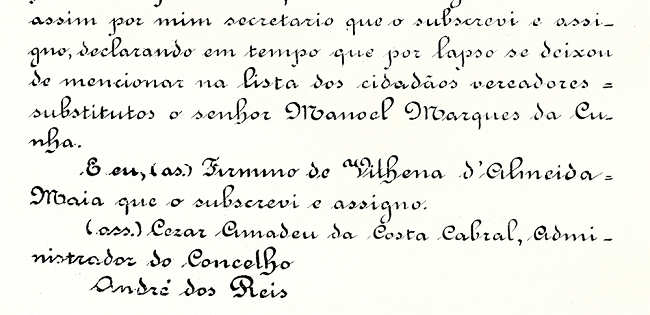 assim por mim secretario que o subscrevi e assi-
gno, declarando em tempo que por lapso se deixou
de mencionar na lista dos cidadãos vereadores =
substitutos o senhor Manoel Marques da Cu-
nha.
E eu, (as.) Firmino de Vilhena d'Almeida =
Maia que o subscrevi e assigno.
(ass.) Cezar Amadeu da Costa Cabral, Admi-
nistrador do Concelho
André dos Reis